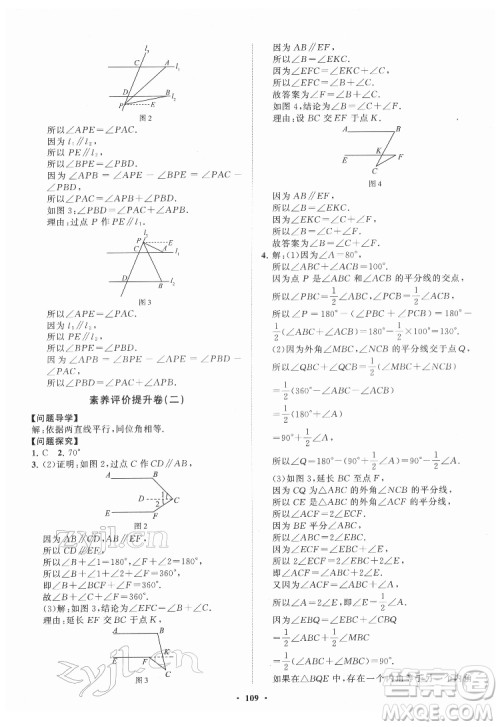 l₃
C A l₁
D B l₂
P E
图2
所以∠APE=∠PAC.
因为l₁∥l₂,
所以PE∥l₂,
所以∠BPE=∠PBD.
因为∠APB=∠APE-∠BPE=∠PAC-∠PBD,
所以∠PAC=∠APB+∠PBD.
如图3:∠PBD=∠PAC+∠APB.
理由:过点P作PE∥l₁,
P E
C A l₁
D B l₂
l₃
图3
所以∠APE=∠PAC.
因为l₁∥l₂,
所以PE∥l₂,
所以∠BPE=∠PBD.
因为∠APB=∠BPE-∠APE=∠PBD-∠PAC,
所以∠PBD=∠PAC+∠APB.
素养评价提升卷(二)
【问题导学】
解:依据两直线平行,同位角相等.
【问题探究】
1. C 2. 70°
3. (2)证明:如图2,过点C作CD∥AB,
A B
D C
E F
图2
因为AB∥CD,
所以∠B+∠1=180°.
因为AB∥CD,AB∥EF,
所以CD∥EF,
所以∠F+∠2=180°,
所以∠B+∠1+∠F+∠2=180°+180°,
即∠B+∠C+∠F=360°,
故答案为∠B+∠C+∠F=360°.
(3)解:如图3,结论为∠EFC=∠B+∠C.
理由:延长EF交BC于点K.
A B
E F K
C
图3
因为AB∥EF,
所以∠B=∠EKC.
因为∠EFC=∠EKC+∠C,
所以∠EFC=∠B+∠C.
故答案为∠EFC=∠B+∠C.
如图4,结论为∠B=∠C+∠F.
理由:设BC交EF于点K.
A B
E K F
C
图4
因为AB∥EF,
所以∠B=∠EKC.
因为∠EKC=∠C+∠F,
所以∠B=∠C+∠F.
故答案为∠B=∠C+∠F.
4. 解:(1)因为∠A=80°,
所以∠ABC+∠ACB=100°.
因为点P是∠ABC和∠ACB的平分线的交点,
所以∠PBC=1/2∠ABC,∠PCB=1/2∠ACB,
所以∠P=180°-(∠PBC+∠PCB)=180°-
1/2(∠ABC+∠ACB)=180°-1/2×100°=130°.
(2)因为外角∠MBC,∠NCB的平分线交于点Q,
所以∠QBC+∠QCB=1/2(∠MBC+∠NCB)=
1/2(360°-∠ABC-∠ACB)=1/2(180°+∠A)
=90°+1/2∠A,
所以∠Q=180°-(90°+1/2∠A)=90°-1/2∠A.
(3)如图,延长BC至点F.
因为CQ为△ABC的外角∠NCB的平分线,
所以CE是△ABC的外角∠ACF的平分线,
所以∠ACF=2∠ECF.
因为BE平分∠ABC,
所以∠ABC=2∠EBC.
因为∠ECF=∠EBC+∠E,
所以2∠ECF=2∠EBC+2∠E,
即∠ACF=∠ABC+2∠E.
又因为∠ACF=∠ABC+∠A,
所以∠A=2∠E,即∠E=1/2∠A.
因为∠EBQ=∠EBC+∠CBQ
=1/2∠ABC+1/2∠MBC
=1/2(∠ABC+∠A+∠ACB)=90°,
所以如果在△BQE中,存在一个
109